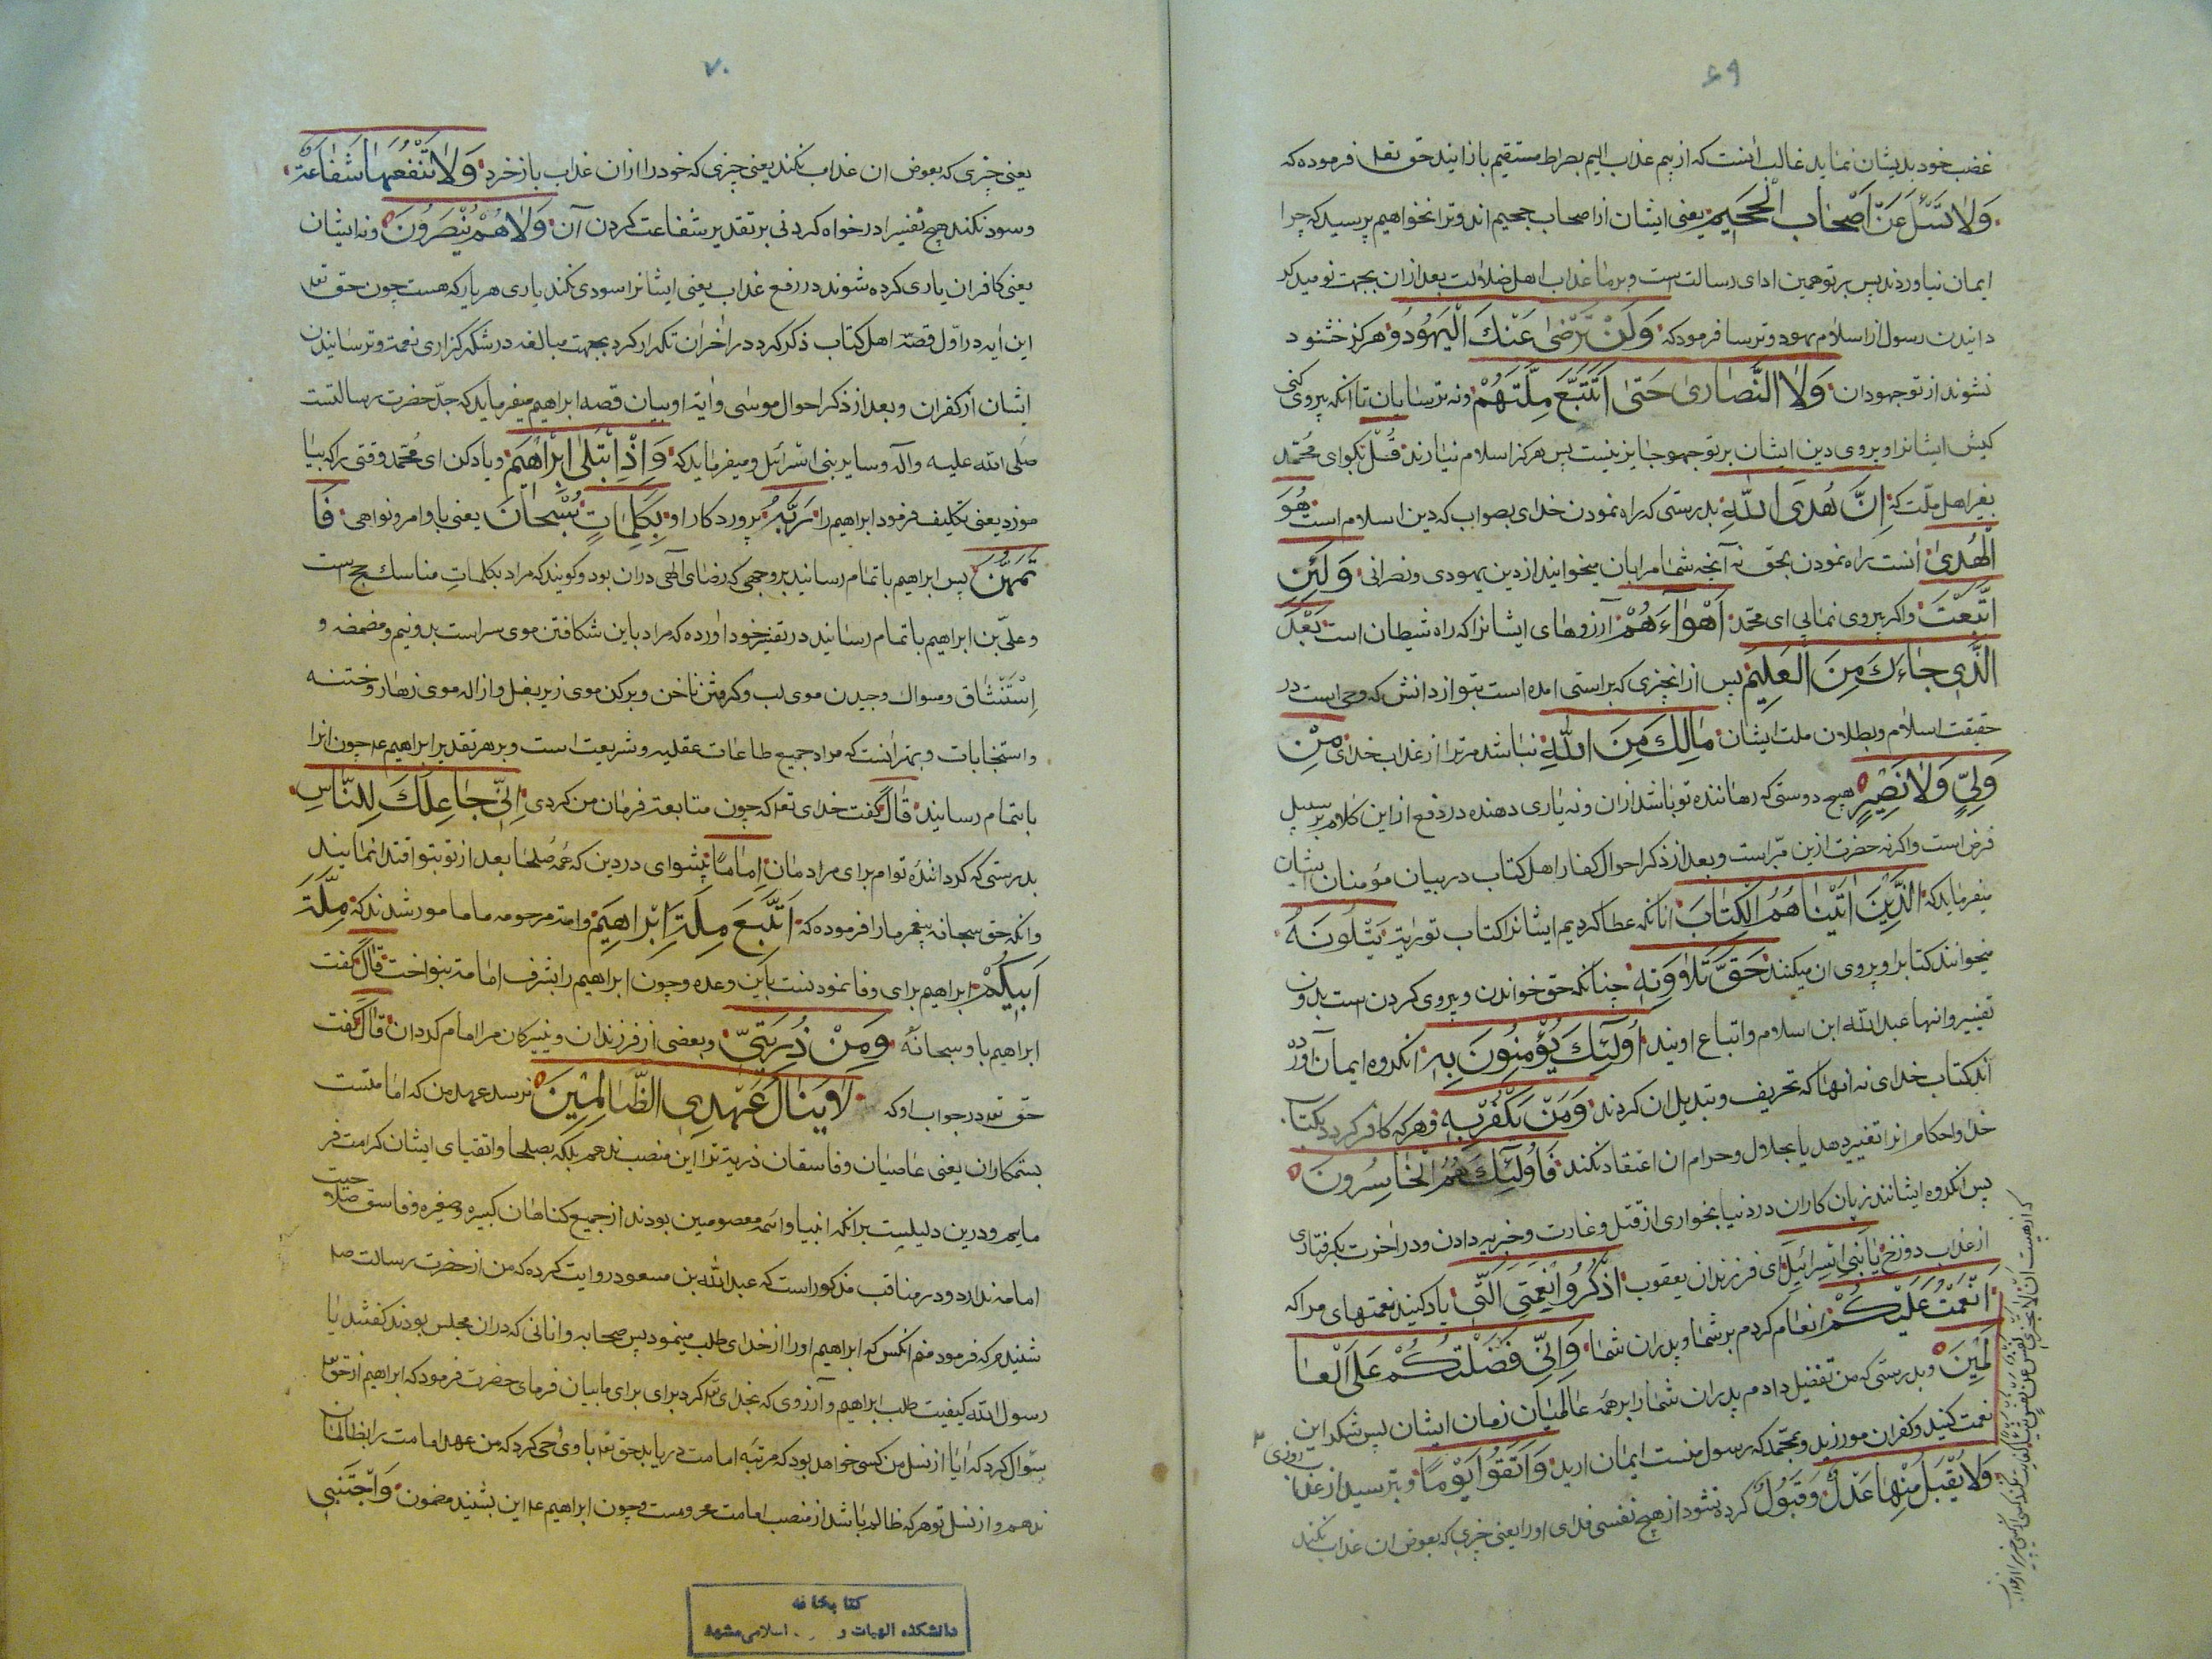 ۶۹
غضب خود بدیشان نماید غالب انست که از بیم عذاب الیم بصراط مستقیم باز ایند حق تعلا فرموده که
وَلَا تَسْئَلُ عَنْ اَصْحَابِ الْجَحِیمِ یعنی ایشان از اصحاب جحیم اند و ترا نخواهیم پرسید که چرا
ایمان نیاوردند پس بر تو همین ادای رسالت است و بر ما عذاب اهل ضلالت بعد از ان بجهت نومید کر
دانیدن رسول از اسلام یهود و ترسا فرمود که وَلَنْ تَرْضٰی عَنْكَ الْیَهُودُ و هرکز خشنود
نشوند از تو جهودان وَلَا النَّصَارٰی حَتّٰی تَتَّبِعَ مِلَّتَهُمْ و نه ترسایان تا انکه پیروی کنی
کیش ایشانرا و پروی دین ایشان بر تو جهو جایز نیست پس هرکز اسلام نیارند قُلْ بکو ای محمّد
بغیر اهل ملّت که اِنَّ هُدَی اللّٰهِ بدرستی که راه نمودن خدای بصواب که دین اسلام است هُوَ
الْهُدٰی انست راه نمودن بحق نه آنچه شما مرا بان میخوانید از دین یهودی و نصرانی وَلَئِنِ
اتَّبَعْتَ و اکر پیروی نمایی ای محمّد اَهْوَآءَهُمْ آرزوهای ایشانرا که راه شیطان است بَعْدَ
الَّذِی جَاءَكَ مِنَ الْعِلْمِ پس از انچیزی که براستی امده است بتو از دانش که وحی است در
حقیقت اسلام و بطلان ملت ایشان مَالَكَ مِنَ اللّٰهِ نباشد مر ترا از عذاب خدای مِنْ
وَلِیٍّ وَلَا نَصِیرٍ هیچ دوستی که رهاننده تو باشد ازان و نه یاری دهنده در دفع از این کلام بر سبیل
فرض است و اکر نه حضرت ازین مبّرا است و بعد از ذکر احوال کفار اهل کتاب در بیان مؤمنان ایشان
میفرماید که الَّذِینَ اٰتَیْنَاهُمُ الْكِتَابَ انانکه عطا کردیم ایشانرا کتاب توراة یَتْلُونَهُ
میخوانند کتابرا و پروی ان میکنند حَقَّ تِلَاوَتِهِ چنانکه حق خواندن و پیروی کردن است بدون
تغییر و انها عبد اللّه ابن اسلام و اتباع اویند اُولٰئِكَ یُؤْمِنُونَ بِهِ انکروه ایمان آورده
اند کتاب خدای نه انها که تحریف و تبدیل ان کردند وَمَنْ یَكْفُرْ بِهِ و هر که کافر کردد بکتاب
خدا و احکام انرا تغییر دهد یا بحلال و حرام ان اعتقاد نکند فَاُولٰئِكَ هُمُ الْخَاسِرُونَ
پس انکروه ایشانند زیان کاران در دنیا بخواری از قتل و غارت و جزیه دادن و در اخرت بکرفتاری
از عذاب دوزخ یَا بَنِی اِسْرَائِیلَ ای فرزندان یعقوب اذْكُرُوا نِعْمَتِیَ الَّتِی یاد کنید نعمتهای مرا که
اَنْعَمْتُ عَلَیْكُمْ انعام کردم بر شما و پدران شما وَاَنِّی فَضَّلْتُكُمْ عَلَی الْعَا
لَمِینَ و بدرستی که من تفضیل دادم پدران شما را بر همه عالمیان زمان ایشان پس شکر این
نعمت کنید و کفران مورزید و بمحمّد که رسول منست ایمان ارید وَاتَّقُوا یَوْمًا و بترسید از عذاب روزی
وَلَا یُقْبَلُ مِنْهَا عَدْلٌ و قبول کرده نشود از هیچ نفسی فدای او را یعنی چیزی که بعوض ان عذاب نکند
که از هیبت ان لَا تَجْزِی نَفْسٌ عَنْ نَفْسٍ شَیْئًا
۷۰
یعنی چیزی که بعوض ان عذاب نکند یعنی چیزی که خود را از ان عذاب باز خرد وَلَا تَنْفَعُهَا شَفَاعَةٌ
و سود نکند هیچ نفسیرا درخواه کردنی بر تقدیر شفاعت کردن آن وَلَا هُمْ یُنْصَرُونَ و نه ایشان
یعنی کافران یاری کرده شوند در رفع عذاب یعنی ایشانرا سودی نکند یاری هر یار که هست چون حق تعلا
این ایه در اول قصّه اهل کتاب ذکر کرد در اخران تکرار کرد بجهت مبالغه در شکر کزاری نعمت و ترسانیدن
ایشان از کفران و بعد از ذکر احوال موسی و ایة او بیان قصه ابراهیم میفرماید که جدّ حضرت رسالتست
صلی اللّه علیه واله و سایر بنی اسرائیل و میفرماید که وَاِذِ ابْتَلٰی اِبْرٰاهِیمَ و یاد کن ای محمّد وقتی را که بیا
موزد یعنی تکلیف فرمود ابراهیم را رَبُّهُ پروردکار او بِكَلِمَاتٍ بسخنان یعنی باوامر و نواهی فَا
تَمَّهُنَّ پس ابراهیم باتمام رسانید بروجهی که رضای آلهی دران بود و کویند که مراد بکلمات مناسك حج است
و علی بن ابراهیم باتمام رسانید در تفسیر خود اورده که مراد باین شکافتن موی سر است بدونیم و مضمضه و
اِسْتِنْشَاق و مسواك و چیدن موی لب و کرفتن ناخن و برکندن موی زیر بغل و ازاله موی زهار و ختنه
و استنجابات و بهتر انست که مراد جمیع طاعات عقلیه و شریعت است و بر هر تقدیر ابراهیم ع چون انرا
باتمام رسانید قَالَ کفت خدای تعا که چون متابعة فرمان من کردی اِنِّی جَاعِلُكَ لِلنَّاسِ
بدرستی که کردانندۀ توام برای مرادمان اِمَامًا پیشوای در دین که همه صُلحا بعد از تو بتو اقتدا نمایند
و انکه حق سبحانه پیغمر ما را فرموده که اتَّبِعْ مِلَّةَ اِبْرَاهِیمَ و امة مرحومه ما مامور شدند که مِلَّةَ
اَبِیكُمْ ابراهیم برای وفا نمودنست باین وعده و چون ابراهیم را بشرف امامة بنواخت قَالَ کفت
ابراهیم با و سبحانه وَمِنْ ذُرِّیَّتِی و بعضی از فرزندان و نبیرکان مرا امام کردان قَالَ کفت
حق تعا در جواب او که لَا یَنَالُ عَهْدِی الظَّالِمِینَ نرسد عهد من که امامتست
بستمکاران یعنی عاصیان و فاسقان ذریة ترا این منصب ندهم بلکه بصلحا و اتقیای ایشان کرامت فر
مایم و درین دلیلیست برانکه انبیا و ائمه معصومین بودند از جمیع کناهان کبیره و صغیره و فاسق صلاحیت
امامة ندارد و در مناقب مذکور است که عبد اللّه بن مسعود روایت کرده که من از حضرت رسالت صلا
شنیدم که فرمود منم انکس که ابراهیم او را از خدای طلب مینمود پس صحابه و انانی که دران مجلس بودند کفتند یا
رسول اللّه کیفیت طلب ابراهیم و آرزوی که بخدای تعا کرد برای برای ما بیان فرمای حضرت فرمود که ابراهیم از حق تعا
سؤال کرد که ایا از نسل من کسی خواهد بود که مرتبه امامت دریابد حق تعا باو وحی کرد که من عهد امامت را بظالمان
ندهم و از نسل تو هر که ظالم باشد از منصب امامت محرومست و چون ابراهیم ع این بشنید مضمون وَاجْنُبْنِی
کتابخانه
دانشکده الهیات و اسلامی مشهد